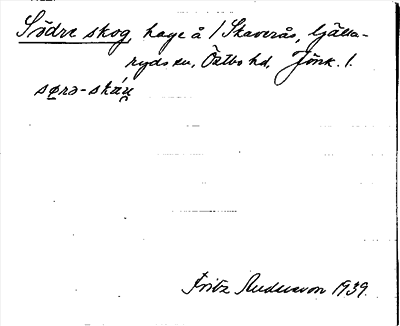 Södre skog, hage å 1 Skaverås, Gjälla-
ryds sn, Östbo hd, Jönk. l.
sørə-skɷ́ɡ
Fritz Andersson 1939.